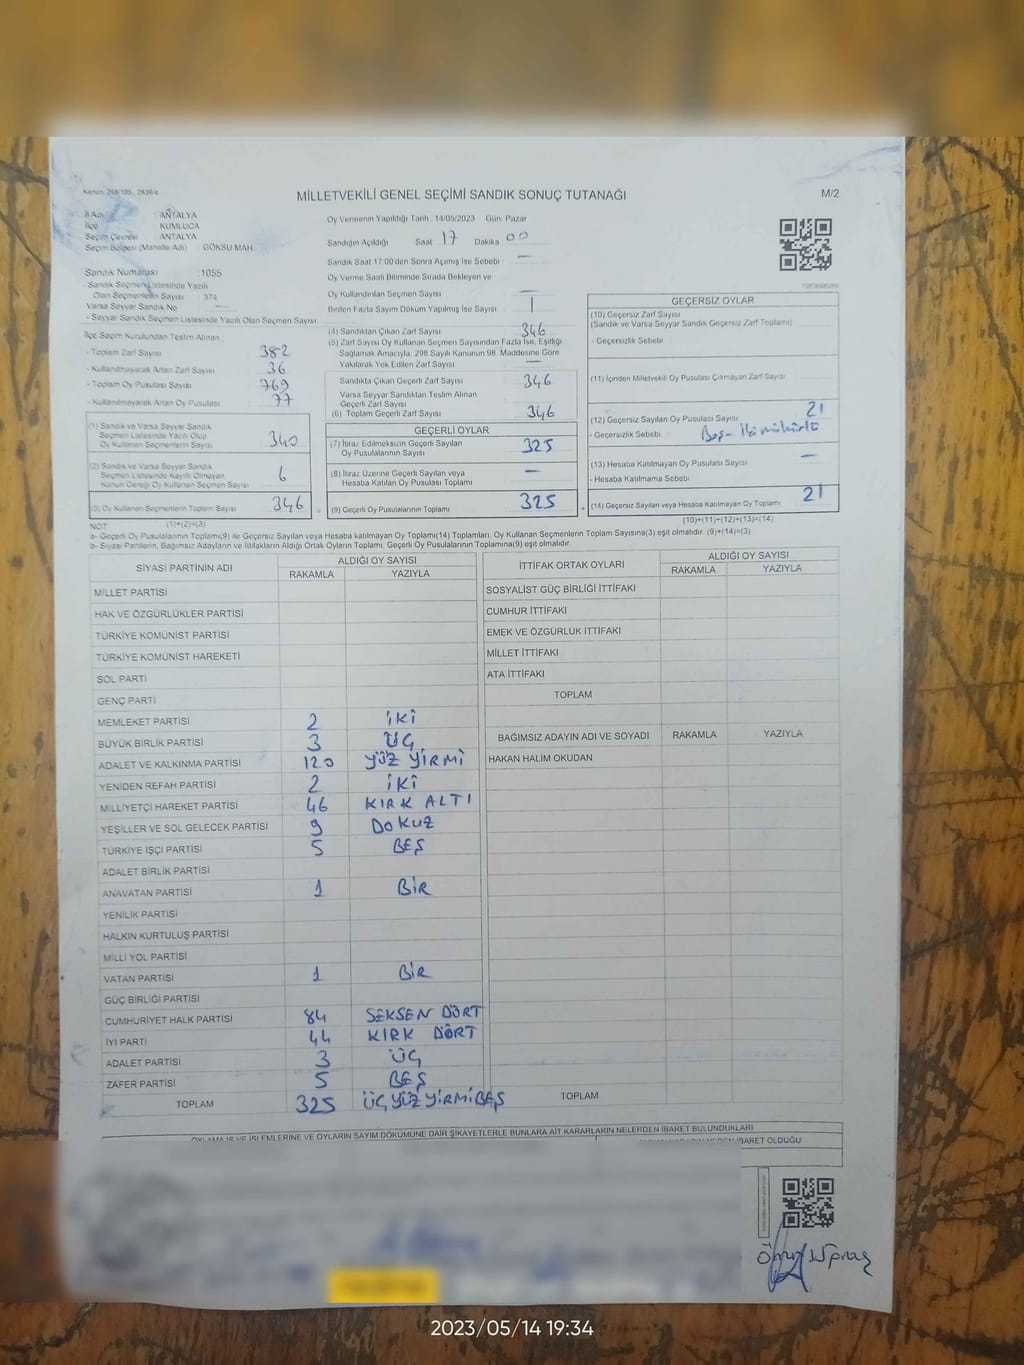 Kanun: 298/105, 2839/4
MİLLETVEKİLİ GENEL SEÇİMİ SANDIK SONUÇ TUTANAĞI
M/2
İl Adı : ANTALYA
İlçe : KUMLUCA
Seçim Çevresi : ANTALYA
Seçim Bölgesi (Mahalle Adı) GÖKSU MAH
Oy Vermenin Yapıldığı Tarih : 14/05/2023 Gün Pazar
Sandığın Açıldığı Saat 17 Dakika 00
Sandık Saat 17:00'den Sonra Açılmış İse Sebebi : —
Oy Verme Saati Bitiminde Sırada Bekleyen ve
Oy Kullandırılan Seçmen Sayısı —
Birden Fazla Sayım Döküm Yapılmış İse Sayısı 1
Sandık Numarası : 1055
- Sandık Seçmen Listesinde Yazılı
Olan Seçmenlerin Sayısı : 374
Varsa Seyyar Sandık No —
- Seyyar Sandık Seçmen Listesinde Yazılı Olan Seçmen Sayısı :
İlçe Seçim Kurulundan Teslim Alınan :
- Toplam Zarf Sayısı 382
- Kullanılmayarak Artan Zarf Sayısı 36
- Toplam Oy Pusulası Sayısı 769
- Kullanılmayarak Artan Oy Pusulası 77
(1) Sandık ve Varsa Seyyar Sandık
Seçmen Listesinde Yazılı Olup
Oy Kullanan Seçmenlerin Sayısı 340
(2) Sandık ve Varsa Seyyar Sandık
Seçmen Listesinde Kayıtlı Olmayan
Kanun Gereği Oy Kullanan Seçmen Sayısı 6
(3) Oy Kullanan Seçmenlerin Toplam Sayısı 346
(1)+(2)=(3)
(4) Sandıktan Çıkan Zarf Sayısı 346
(5) Zarf Sayısı Oy Kullanan Seçmen Sayısından Fazla İse, Eşitliği
Sağlamak Amacıyla, 298 Sayılı Kanunun 98. Maddesine Göre
Yakılarak Yok Edilen Zarf Sayısı —
Sandıkta Çıkan Geçerli Zarf Sayısı 346
Varsa Seyyar Sandıktan Teslim Alınan
Geçerli Zarf Sayısı
(6) Toplam Geçerli Zarf Sayısı 346
GEÇERLİ OYLAR
(7) İtiraz Edilmeksizin Geçerli Sayılan
Oy Pusulasının Sayısı 325
(8) İtiraz Üzerine Geçerli Sayılan veya
Hesaba Katılan Oy Pusulası Toplamı —
(9) Geçerli Oy Pusulalarının Toplamı 325
GEÇERSİZ OYLAR
(10) Geçersiz Zarf Sayısı
(Sandık ve Varsa Seyyar Sandık Geçersiz Zarf Toplamı)
- Geçersizlik Sebebi
(11) İçinden Milletvekili Oy Pusulası Çıkmayan Zarf Sayısı
(12) Geçersiz Sayılan Oy Pusulası Sayısı 21
- Geçersizlik Sebebi Boş - İki mühürlü
(13) Hesaba Katılmayan Oy Pusulası Sayısı —
- Hesaba Katılmama Sebebi
(14) Geçersiz Sayılan veya Hesaba Katılmayan Oy Toplamı 21
(10)+(11)+(12)+(13)=(14)
NOT
a- Geçerli Oy Pusulalarının Toplamı(9) ile Geçersiz Sayılan veya Hesaba katılmayan Oy Toplamı(14) Toplamları, Oy Kullanan Seçmenlerin Toplam Sayısına(3) eşit olmalıdır. (9)+(14)=(3)
b- Siyasi Partilerin, Bağımsız Adayların ve İttifakların Aldığı Ortak Oyların Toplamı, Geçerli Oy Pusulalarının Toplamına(9) eşit olmalıdır.
SİYASİ PARTİNİN ADI ALDIĞI OY SAYISI
RAKAMLA YAZIYLA
MİLLET PARTİSİ
HAK VE ÖZGÜRLÜKLER PARTİSİ
TÜRKİYE KOMÜNİST PARTİSİ
TÜRKİYE KOMÜNİST HAREKETİ
SOL PARTİ
GENÇ PARTİ
MEMLEKET PARTİSİ 2 İKİ
BÜYÜK BİRLİK PARTİSİ 3 ÜÇ
ADALET VE KALKINMA PARTİSİ 120 YÜZ YİRMİ
YENİDEN REFAH PARTİSİ 2 İKİ
MİLLİYETÇİ HAREKET PARTİSİ 46 KIRK ALTI
YEŞİLLER VE SOL GELECEK PARTİSİ 9 DOKUZ
TÜRKİYE İŞÇİ PARTİSİ 5 BEŞ
ADALET BİRLİK PARTİSİ
ANAVATAN PARTİSİ 1 BİR
YENİLİK PARTİSİ
HALKIN KURTULUŞ PARTİSİ
MİLLİ YOL PARTİSİ
VATAN PARTİSİ 1 BİR
GÜÇ BİRLİĞİ PARTİSİ
CUMHURİYET HALK PARTİSİ 84 SEKSEN DÖRT
İYİ PARTİ 44 KIRK DÖRT
ADALET PARTİSİ 3 ÜÇ
ZAFER PARTİSİ 5 BEŞ
TOPLAM 325 ÜÇ YÜZ YİRMİ BEŞ
İTTİFAK ORTAK OYLARI ALDIĞI OY SAYISI
RAKAMLA YAZIYLA
SOSYALİST GÜÇ BİRLİĞİ İTTİFAKI
CUMHUR İTTİFAKI
EMEK VE ÖZGÜRLÜK İTTİFAKI
MİLLET İTTİFAKI
ATA İTTİFAKI
TOPLAM
BAĞIMSIZ ADAYIN ADI VE SOYADI RAKAMLA YAZIYLA
HAKAN HALİM OKUDAN
TOPLAM
OYLAMA İŞ VE İŞLEMLERİNE VE OYLARIN SAYIM DÖKÜMÜNE DAİR ŞİKAYETLERLE BUNLARA AİT KARARLARIN NELERDEN İBARET BULUNDUKLARI
İBARET OLDUĞU
2023/05/14 19:34